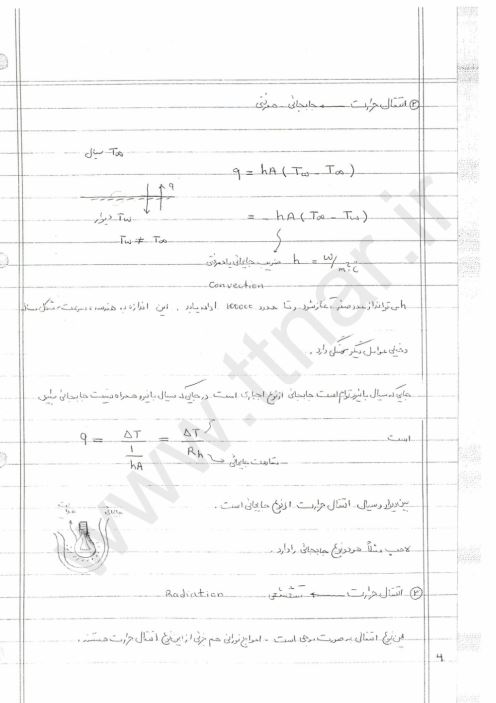 ② انتقال حرارت ← جابجائی - همرفتی
T∞ سیال
q = hA ( Tw - T∞ )
q
Tw دیوار
= - hA ( T∞ - Tw )
Tw ≠ T∞
ضریب جابجائی یا همرفتی h = W/m².°C
Convection
h می‌تواند از عدد صفر آغاز شود و تا حدود ادامه یابد. این اندازه به هندسه، سرعت، شکل
و خیلی عوامل دیگر بستگی دارد.
جایی که سیال با نیرو توام است جابجائی از نوع اجباری است. در جایی که سیال با نیرو همراه نیست جابجائی
است
q = ΔT / (1/hA) = ΔT / Rh
مقاومت جابجائی
بین دیوار و سیال انتقال حرارت از نوع جابجائی است.
لامپ مثلاً هر دو نوع جابجائی را دارد.
③ انتقال حرارت ← تشعشعی Radiation
این نوع انتقال به صورت موجی است - امواج نورانی هم جزئی از این نوع انتقال حرارت هستند.
4
www.ttnar.ir